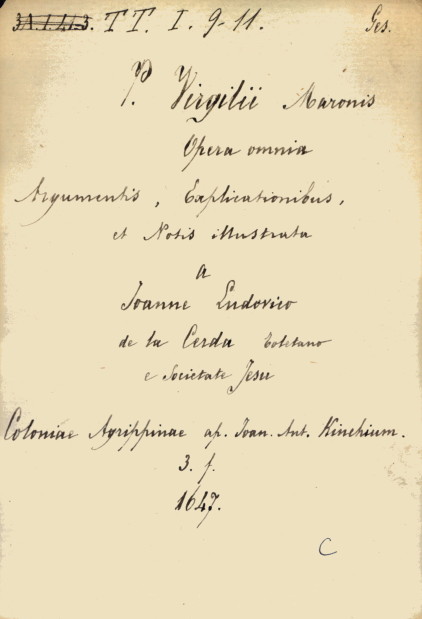 TT. I. 9-11. Ges.
P. Virgilii Maronis
Opera omnia
Argumentis, Explicationibus,
et Notis illustrata
a
Joanne Ludovico
de la Cerda Toletano
e Societate Jesu
Coloniae Agrippinae ap. Joan. Ant. Kinchium.
3. f.
1647.
C